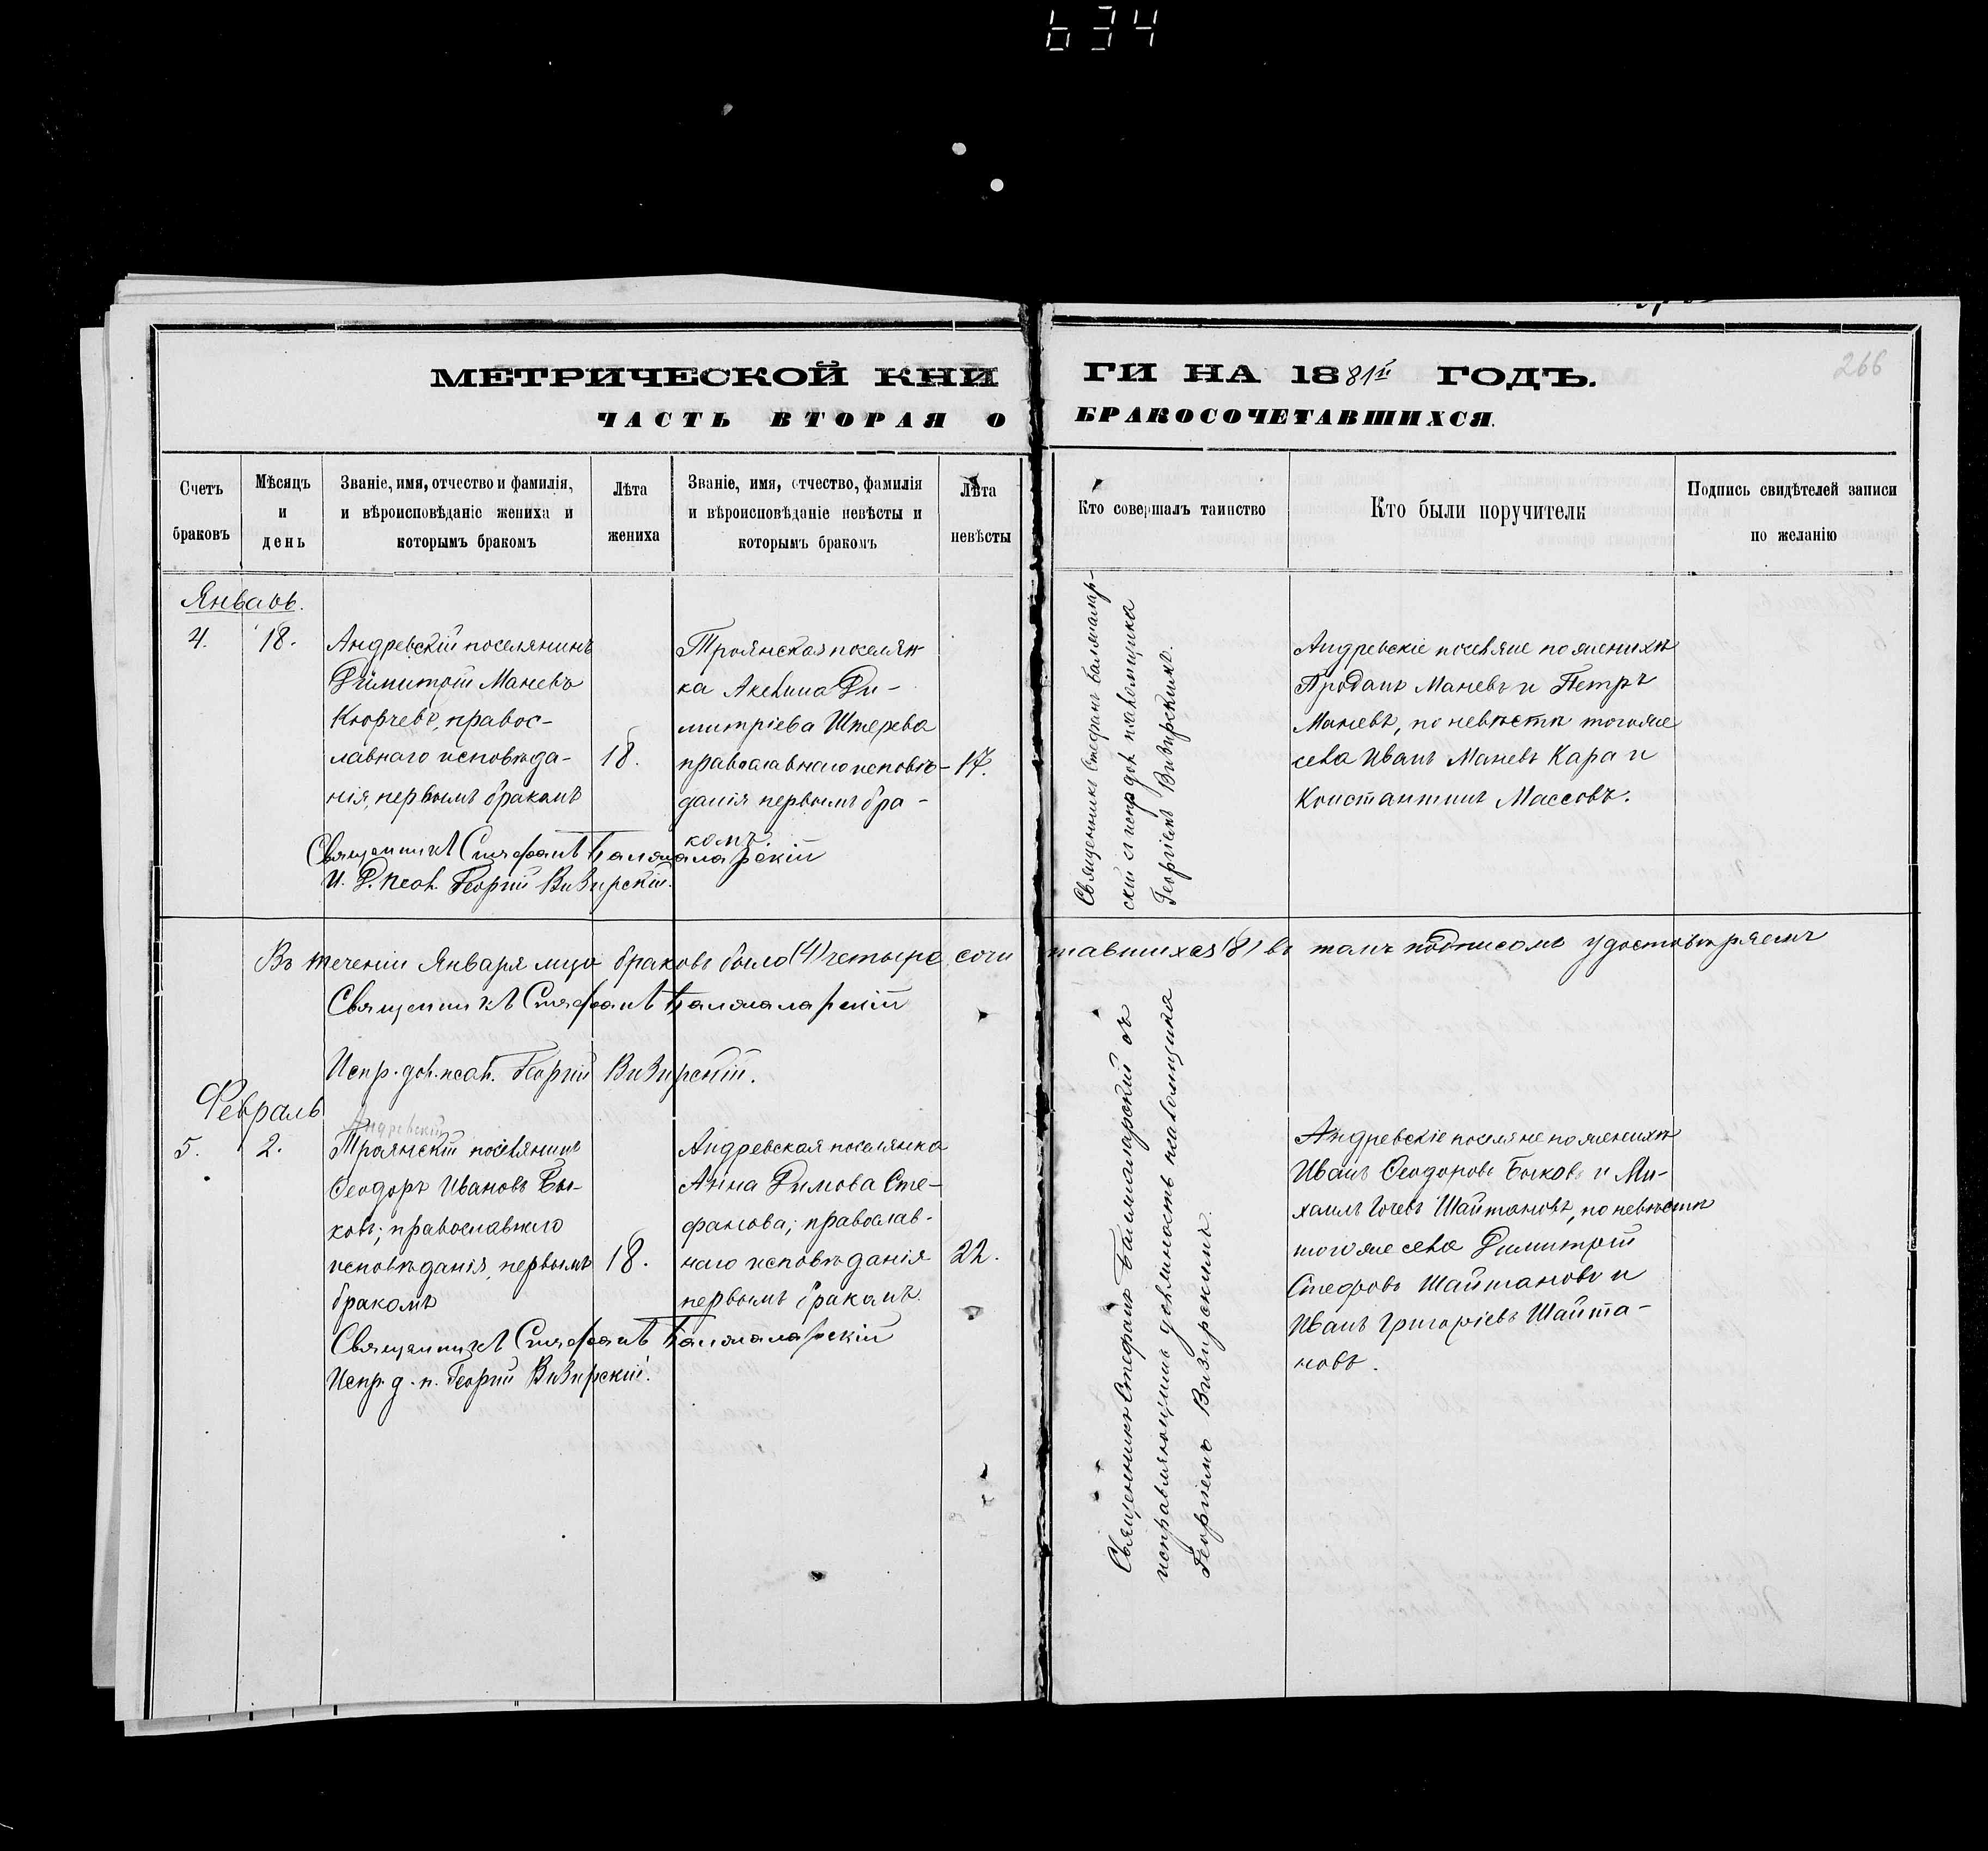 634
266
МЕТРИЧЕСКОЙ КНИ ГИ НА 1881й ГОДЪ.
ЧАСТЬ ВТОРАЯ О БРАКОСОЧЕТАВШИХСЯ.
Счетъ браковъ
Мѣсяцъ и день
Званіе, имя, отчество и фамилія,
и вѣроисповѣданіе жениха и
которымъ бракомъ
Лѣта жениха
Званіе, имя, отчество, фамилія
и вѣроисповѣданіе невѣсты и
которымъ бракомъ
Лѣта невѣсты
Кто совершалъ таинство
Кто были поручители
Подпись свидѣтелей записи
по желанію
Январь.
4.
18.
Андревскій поселянинъ
Димитрій Маневъ
Кюрчевъ, правос-
лавнаго исповѣда-
нія, первымъ бракомъ
18.
Троянская поселян
ка Акелина Ди-
митріева Штерева
православнаго исповѣ-
данія первымъ бра-
комъ.
17.
Священникъ Стефанъ Балжалар-
скій съ испр дол псаломщика
Георгіемъ Визирскимъ.
Андревскіе поселяне по женихѣ
Проданъ Маневъ и Петръ
Маневъ, по невѣсти тогоже
села Иванъ Маневъ Кара и
Константинъ Массовъ.
Священникъ Стефанъ Балжаларскій
И. Д. псал. Георгій Визирскій.
Въ теченіи Января мца браковъ было (4) четыре сочи тавшихся (8) въ томъ подписомъ удостовѣряемъ
Священникъ Стефанъ Балжаларскій
Испр. дол. псал. Георгій Визирскій.
Февраль
5.
2.
Андревскій
Троянскій поселянинъ
Ѳеодоръ Ивановъ Бы-
ковъ; православнаго
исповѣданія, первымъ
бракомъ
18.
Андревская поселянка
Анна Димова Сте-
фанова; православ-
наго исповѣданія
первымъ бракомъ.
22.
Священникъ Стефанъ Балжаларскій съ
исправляющимъ должность псаломщика
Георгіемъ Визирскимъ.
Андревскіе поселяне по женихѣ
Иванъ Ѳеодоровъ Быковъ и Ми-
хаилъ Гочевъ Шайтановъ, по невѣстѣ
тогоже села Димитрій
Стефовъ Шайтановъ и
Иванъ Григоріевъ Шайта-
новъ.
Священникъ Стефанъ Балжаларскій
Испр. д. п. Георгій Визирскій.